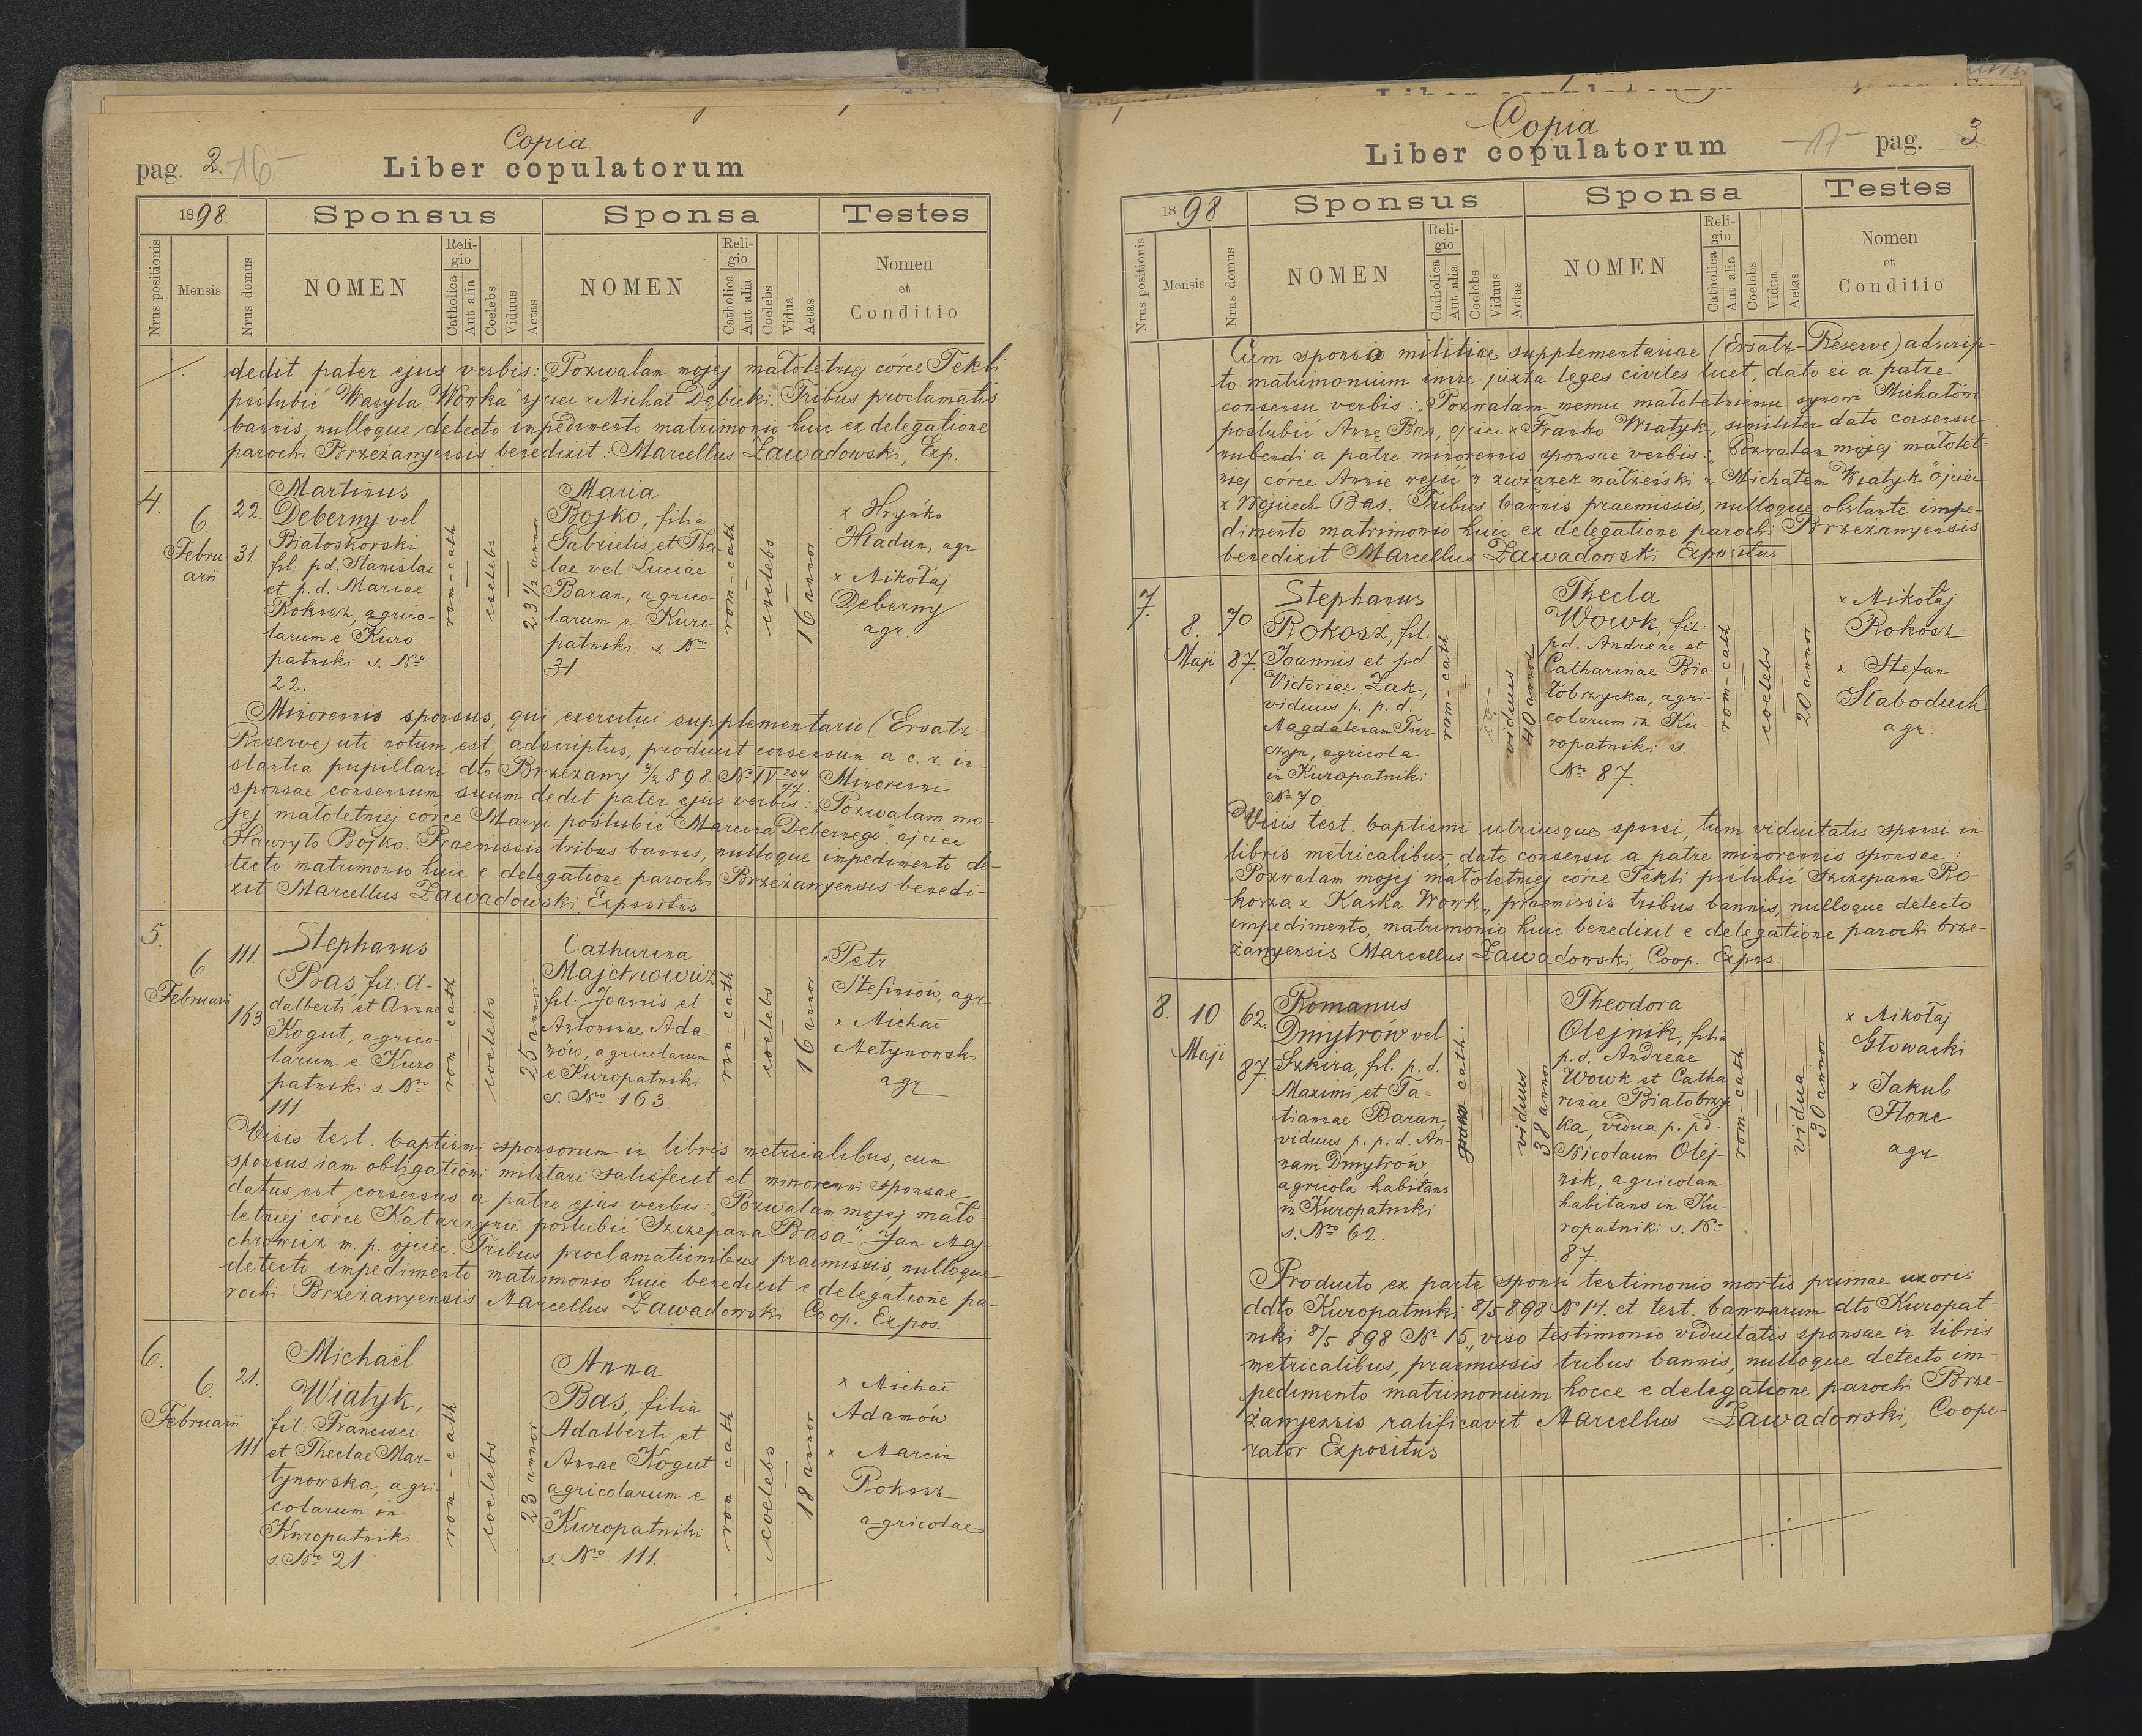 Copia
pag. 2. -16-
Liber copulatorum
1898.
Sponsus
Sponsa
Testes
Nrus positionis
Mensis
Nrus domus
NOMEN
Religio
Catholica
Aut alia
Coelebs
Viduus
Aetas
NOMEN
Religio
Catholica
Aut alia
Coelebs
Vidua
Aetas
Nomen
et
Conditio
dedit pater ejus verbis: „Pozwalam mojej małoletniej córce Tekli
poślubić Wasyla Wowka" ojciec x Michał Dębicki. Tribus proclamatis
bannis, nulloque detecto impedimento matrimonio huic ex delegatione
parochi Brzeżanyensis benedixit: Marcellus Zawadowski, Exp.
4.
6
Febru-
arii
22.
31.
Martinus
Deberny vel
Białoskorski
fil. pd. Stanislai
et p.d. Mariae
Rokosz, agrico-
larum e Kuro-
patniki s. No
22.
rom-cath
coelebs
23 1/2 annor
Maria
Bojko, filia
Gabrielis et Thec
lae vel Luciae
Baran, agrico-
larum e Kuro-
patniki s. No
31.
rom-cath
coelebs
16 annor
x Hryńko
Hładun, agr
x Mikołaj
Deberny
agr.
Minorennis sponsus, qui exercitui supplementario (Ersatz-
Reserve) uti notum est, adscriptus, produxit consensum a c. r. in-
stantia pupillari dto Brzeżany 3/2 898. No IV 204/77. Minorenni
sponsae consensum suum dedit pater ejus verbis: „Pozwalam mo-
jej małoletniej córce Maryi poślubić Marcina Debernego" ojciec
Hawryło Bojko. Praemissis tribus bannis, nulloque impedimento de-
tecto matrimonio huic e delegatione parochi Brzeżanyensis benedi-
xit Marcellus Zawadowski, Expositus
5.
6
Februarii
111.
163
Stephanus
Bas, fil: A-
dalberti et Annae
Kogut, agrico-
larum e Kuro-
patniki s. No
111.
rom-cath
coelebs
25 annor
Catharina
Majchrowicz
fil: Joannis et
Antoninae Ada-
mów, agricolarum
e Kuropatniki
s. No 163.
rom-cath
coelebs
16 annor
x Petr
Stefiniów, agr
x Michał
Metynowski
agr.
Visis test. baptismi sponsorum in libris metricalibus, cum
sponsus iam obligationi militari satisfecit et minorenni sponsae
datus est consensus a patre ejus verbis: „Pozwalam mojej mało-
letniej córce Katarzynie poślubić Szczepana Basa" Jan Maj-
chrowicz m. p. ojciec. Tribus proclamationibus praemissis, nulloque
detecto impedimento matrimonio huic benedixit e delegatione pa-
rochi Brzeżanyensis Marcellus Zawadowski Coop. Expos.
6.
6
Februarii
21.
111.
Michaël
Wiatyk,
fil: Francisci
et Theclae Mar-
tynowska, agri
colarum in
Kuropatniki
s. No 21.
rom-cath
coelebs
23 annor
Anna
Bas, filia
Adalberti et
Annae Kogut
agricolarum e
Kuropatniki
s. No 111.
rom-cath
coelebs
18 annor
x Michał
Adamów
x Marcin
Rokosz
agricolae
Copia
Liber copulatorum
-17- pag. 3
1898.
Sponsus
Sponsa
Testes
Nrus positionis
Mensis
Nrus domus
NOMEN
Religio
Catholica
Aut alia
Coelebs
Viduus
Aetas
NOMEN
Religio
Catholica
Aut alia
Coelebs
Vidua
Aetas
Nomen
et
Conditio
Cum sponso militiae supplementariae (Ersatz-Reserve) adscrip-
to matrimonium inire juxta leges civiles licet, dato ei a patre
consensu verbis: „Pozwalam memu małoletniemu synowi Michałowi
poślubić Annę Bas, ojciec x Franko Wiatyk, similiter dato consensu
nubendi a patre minorennis sponsae verbis: „Pozwalam mojej małolet-
niej córce Annie wejść w związek małżeński z Michałem Wiatyk" ojciec
x Wojciech Bas. Tribus bannis praemissis, nulloque obstante impe-
dimento matrimonio huic ex delegatione parochi Brzeżanyensis
benedixit Marcellus Zawadowski Expositus.
7.
8.
Maji
70
87.
Stephanus
Rokosz, fil.
Joannis et pd.
Victoriae Żak,
viduus p. p. d.
Magdalenam Tur-
czyn, agricola
in Kuropatniki
No 70.
rom-cath
viduus
40 annor
Thecla
Wowk, fil:
pd. Andreae et
Catharinae Bia-
łobrzycka, agri-
colarum in Ku-
ropatniki s.
No 87.
rom-cath
coelebs
20 annor
x Mikołaj
Rokosz
x Stefan
Słaboduch
agr.
Visis test. baptismi utriusque sponsi, tum viduitatis sponsi in
libris metricalibus, dato consensu a patre minorennis sponsae:
„Pozwalam mojej małoletniej córce Tekli poślubić Szczepana Ro-
kosza x Kaśka Wowk, praemissis tribus bannis, nulloque detecto
impedimento, matrimonio huic benedixit e delegatione parochi brze-
żanyensis Marcellus Zawadowski, Coop. Expos:
8.
10
Maji
62.
87.
Romanus
Dmytrów vel
Szkira, fil. p.d.
Maximi et Ta-
tiannae Baran,
viduus p. p. d. An-
nam Dmytrów,
agricola habitans
in Kuropatniki
s. No 62.
cath.
viduus
38 annor
Theodora
Olejnik, filia
p.d. Andreae
Wowk et Catha
rinae Białobrzyc
ka, vidua p. pd.
Nicolaum Olej-
nik, agricolam
habitans in Ku-
ropatniki s. No
87.
rom cath
vidua
30 annor
x Mikołaj
Głowacki
x Jakub
Flonc
agr.
Producto ex parte sponsi testimonio mortis primae uxoris
ddto Kuropatniki 8/5 898 No 14. et test. bannarum dto Kuropat-
niki 8/5 898 No 15., viso testimonio viduitatis sponsae in libris
metricalibus, praemissis tribus bannis, nulloque detecto im-
pedimento matrimonium hocce e delegatione parochi Brze-
żanyensis ratificavit Marcellus Zawadowski, Coope-
rator Expositus